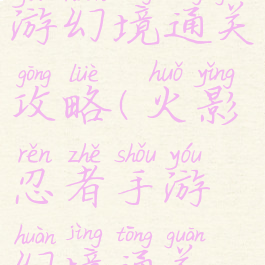 游幻境通关
gōng lüè huǒ yǐng
攻略(火影
rěn zhě shǒu yóu
忍者手游
huàn jìng tōng guān
幻境通关